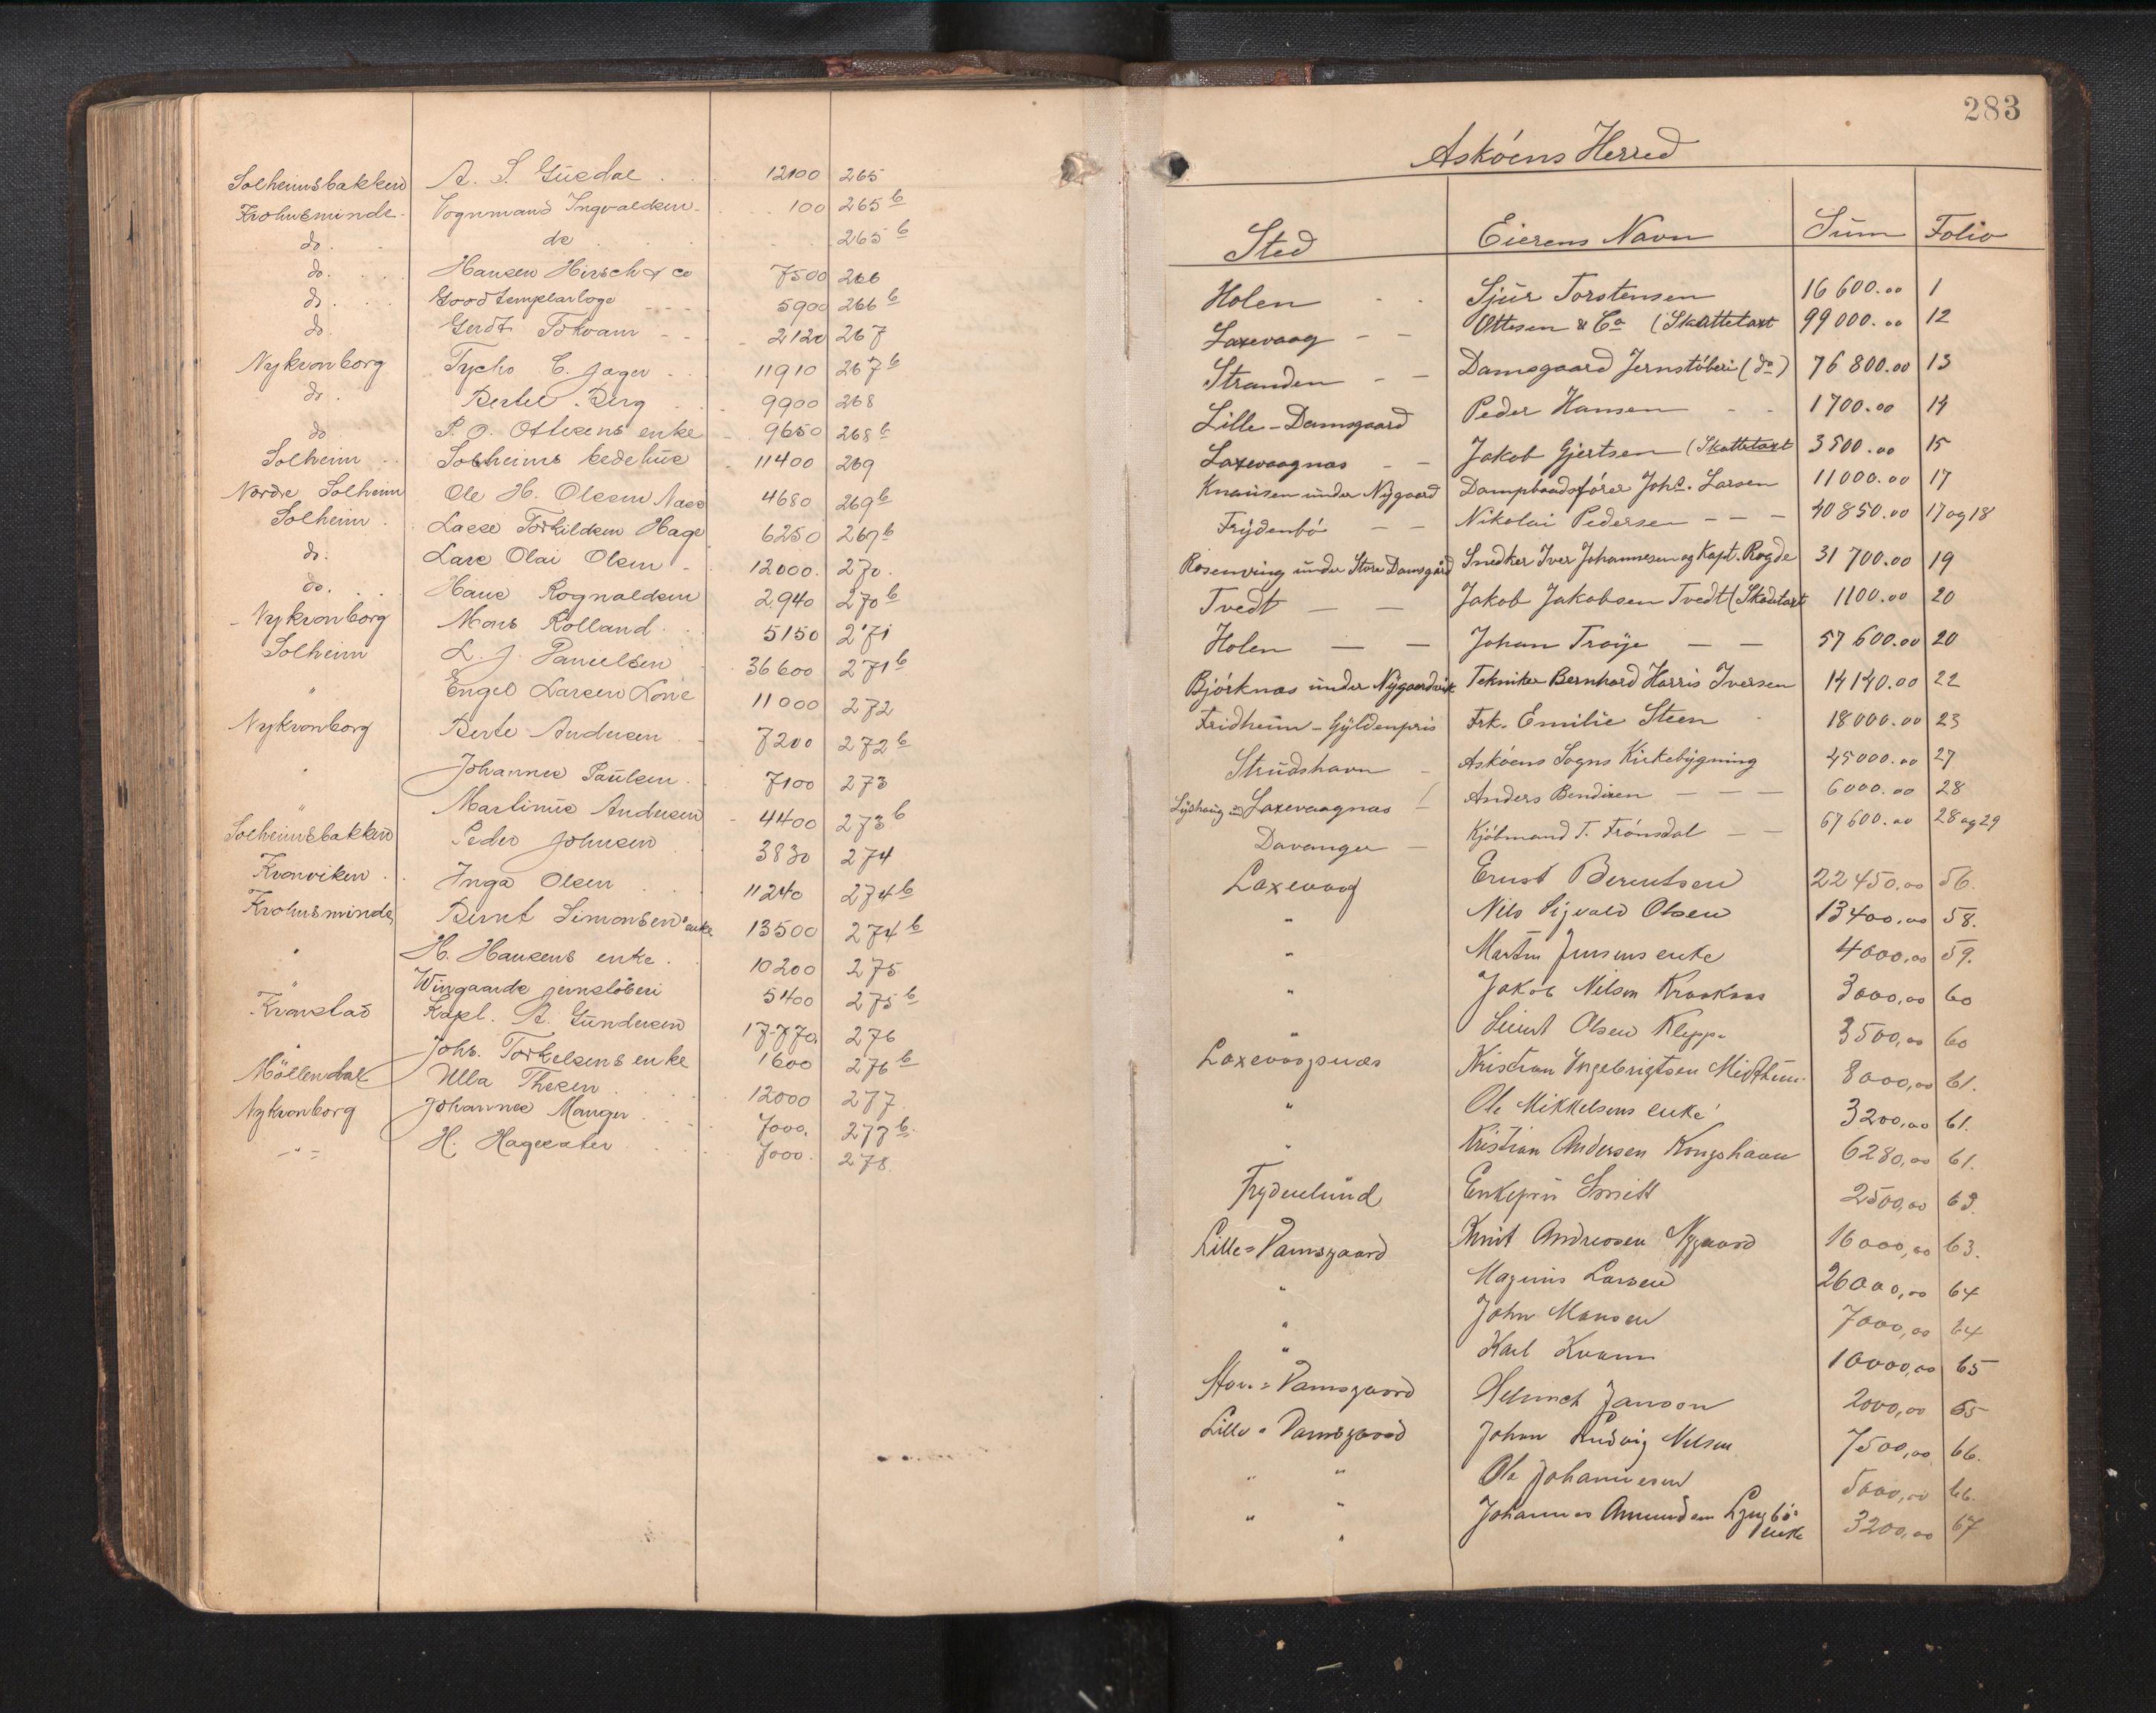 Solheimsbakken A. S. Güsdal . 12100 265
Krohnsminde Vognmand Ingvaldsen 100 265 b
do. do 265 b
do. Hansen Hirsch & co 7500 266
do. Goodtemplarloge 5900 266 b
do. Gerdt Tokvam 2120 267
Nykronborg Tycho C. Jager 11910 267 b
do. Bertel Berg 9900 268
do P. O. Ottesens enke 9650 268 b
Solheim Solheims bedehüs 11400 269
Nordre Solheim Ole H. Olsen Naes 4680 269 b
Solheim Lasse Torkildsen Hage 6250 269 b
do. Lars Olai Olsen 12000. 270.
do. Hans Rognaldsen 2940 270 b
Nykronborg Mons Rolland 5150 271
Solheim L. J. Danielsen 36600 271 b
" Engel Larsen Lone 11000 272
Nykronborg Berte Andersen 7200 272 b
" Johannes Paülsen 7100 273
" Martinüs Andersen 4400 273 b
Solheimsbakken Peder Johnsen 3830 274
Kronviken Inga Olsen 11240 274 b
Krohnsminde Bernt Simonsens enke 13500 274 b
" H. Hansens enke 10200 275
" Wingaards jernstöberi 5400 275 b
Kronstad Kapt. A. Gündersen 17770. 276
" Johs. Torkelsens enke 1600 276 b
Möllendal Ulla Thesen 12000 277
Nykronborg Johannes Manger 7000. 277 b.
- " - H. Hagesæter 7000. 278.
283
Askóens Herred
Sted Eierens Navn Süm Folio
Holen Sjür Torstensen 16 600.00 1
Laxevaag Ottesen & Co (Skattetaxt 99 000.00 12
Stranden Damsgaard Jernstóberi (do) 76 800.00 13
Lille-Damsgaard Peder Hansen 1700.00 14
Laxevaagnæs Jakob Gjertsen (Skattetaxt 3500.00 15
Knausen ünder Nygaard Dampbaadsfórer Johs. Larsen 11000.00 17
Frydenbó Nikolai Pedersen 40 850.00 17 og 18
Rosenving ünder Store Damsgård Snedker Iver Johannesen og Kapt. Rogde 31 700.00 19
Tvedt Jakob Jakobsen Tvedt (Skattetaxt 1100.00 20
Holen Johan Troye 57 600.00 20
Bjórknæs ünder Nygaardsvik Tekniker Bernhard Harris Iversen 14140.00 22
Fridheim - Gyldenpris Frk. Emilie Steen 18000.00 23
Strüdshavn Askóens Sogns Kirkebygning 45000.00 27
Lyshaug Laxevaagnæs Anders Bendixen 6000.00 28
Davanger Kjóbmand T. Frónsdal 67 600.00 28 og 29
Laxevaag Ernst Berentsen 22450,00 56.
" Nils Sigvald Olsen 13400,00 58.
" Martin Jensens enke 4000,00 59.
" Jakob Nilsen 3000,00 60
" Olsen Kleppe 3500,00 60
Laxevaagnæs Kristian Ingebrigtsen Midthün 8000,00 61.
" Ole Mikkelsens enke 3200,00 61.
" Kristian Andersen Kongshavn 6280,00 61.
Frydenlünd Enkefrü Smitt 2500,00 63.
Lille=Damsgaard Knüt Andreasen Nygaard 16000,00 63.
" Magnüs Larsen 26000,00 64
" John Monsen 7000,00 64
" Karl Kvamn 10000,00 65
Store=Damsgaard Helmich Janson 2000,00 65
Lille=Damsgaard Johan Lüdvig Nilsen 7500,00 66.
" " Ole Johannesen 5000,00 66.
" " Johannes Amundsen Lyngbó's 3200,00 67
" enke